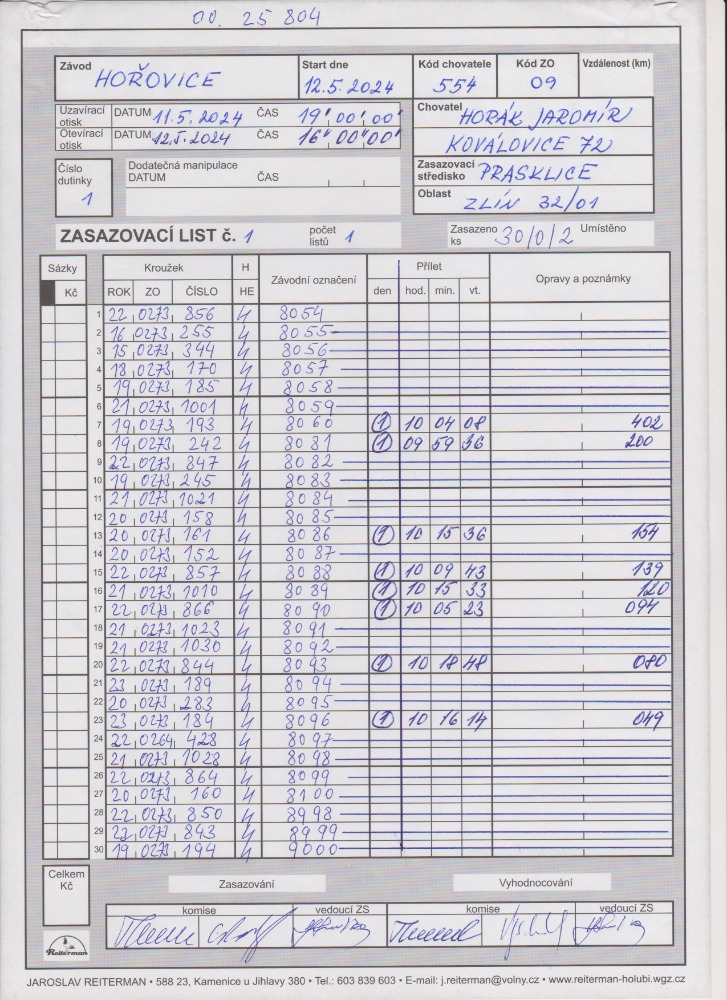 00. 25 804
Závod Start dne Kód chovatele Kód ZO Vzdálenost (km)
HOŘOVICE 12.5.2024 554 09
Uzavírací otisk DATUM 11.5.2024 ČAS 19 00 00 Chovatel HORÁK JAROMÍR
Otevírací otisk DATUM 12.5.2024 ČAS 16 00 00 KOVÁLOVICE 72
Číslo dutinky 1 Dodatečná manipulace Zasazovací středisko PRASKLICE
DATUM ČAS Oblast ZLÍN 32/01
ZASAZOVACÍ LIST č. 1 počet listů 1 Zasazeno ks 30/0/2 Umístěno
Sázky Kroužek H Závodní označení Přílet Opravy a poznámky
Kč ROK ZO ČÍSLO HE den hod. min. vt.
1 22 0273 856 H 8054
2 16 0273 255 H 8055
3 15 0273 344 H 8056
4 18 0273 170 H 8057
5 19 0273 185 H 8058
6 21 0273 1001 H 8059
7 19 0273 193 H 8060 1 10 04 08 402
8 19 0273 242 H 8081 1 09 59 36 200
9 22 0273 847 H 8082
10 19 0273 245 H 8083
11 21 0273 1021 H 8084
12 20 0273 158 H 8085
13 20 0273 161 H 8086 1 10 15 36 154
14 20 0273 152 H 8087
15 22 0273 857 H 8088 1 10 09 43 139
16 21 0273 1010 H 8089 1 10 15 33 120
17 22 0273 866 H 8090 1 10 05 23 094
18 21 0273 1023 H 8091
19 21 0273 1030 H 8092
20 22 0273 844 H 8093 1 10 18 48 080
21 23 0273 189 H 8094
22 20 0273 283 H 8095
23 23 0273 184 H 8096 1 10 16 14 049
24 22 0264 428 H 8097
25 21 0273 1028 H 8098
26 22 0273 864 H 8099
27 20 0273 160 H 8100
28 22 0273 850 H 8998
29 22 0273 843 H 8999
30 19 0273 194 H 9000
Celkem Kč
Zasazování Vyhodnocování
komise vedoucí ZS komise vedoucí ZS
Reiterman
JAROSLAV REITERMAN • 588 23, Kamenice u Jihlavy 380 • Tel.: 603 839 603 • E-mail: j.reiterman@volny.cz • www.reiterman-holubi.wgz.cz